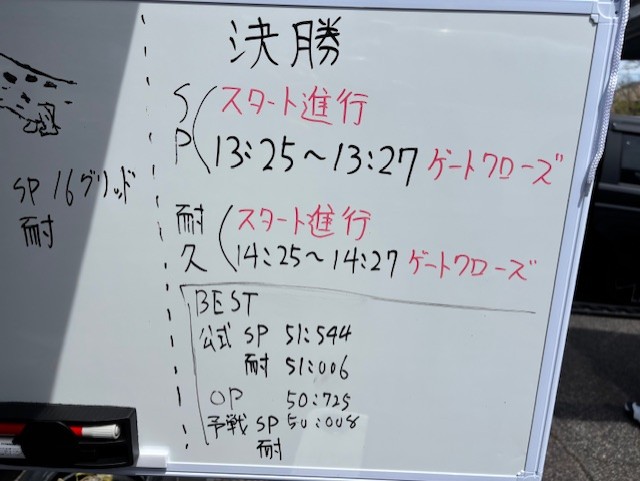 決勝
SP スタート進行
13:25～13:27 ゲートクローズ
SP 16グリッド
耐
耐久 スタート進行
14:25～14:27 ゲートクローズ
BEST
公式 SP 51:544
耐 51:006
OP 50:725
予戦 SP 50:008
耐